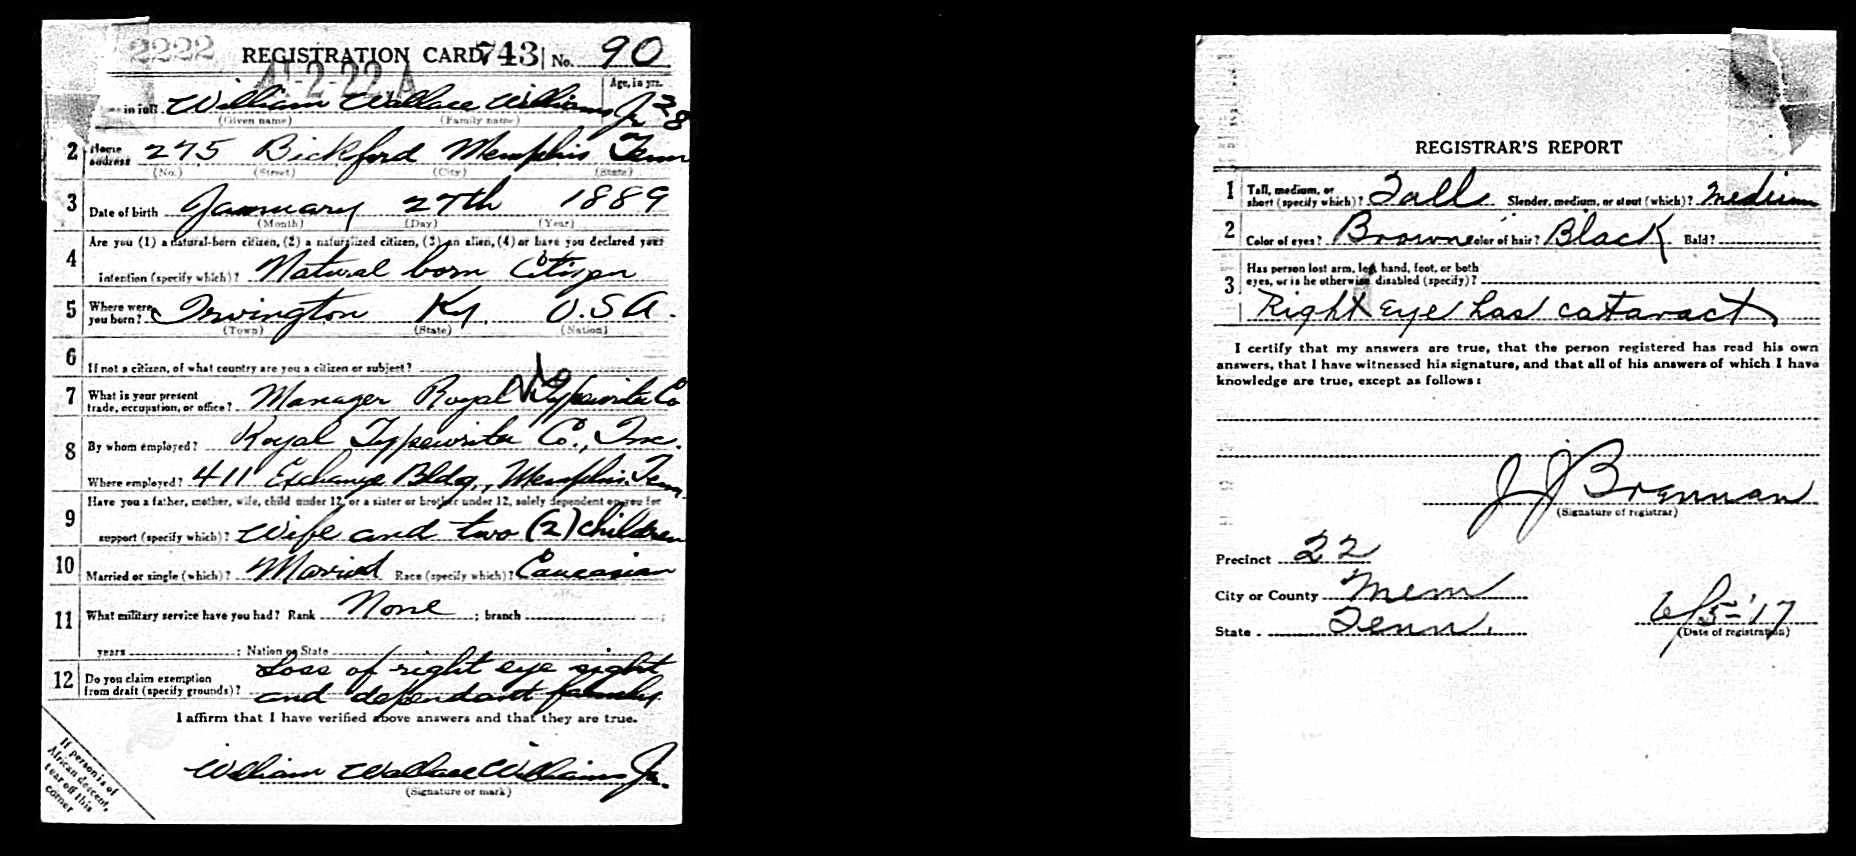 2222 REGISTRATION CARD 743 No. 90
41-2-22 A
in full William Wallace Williams Jr Age, in yrs. 28
(Given name) (Family name)
2 Home address 275 Bickford Memphis Tenn
(No.) (Street) (City) (State)
3 Date of birth January 27th 1889
(Month) (Day) (Year)
4 Are you (1) a natural-born citizen, (2) a naturalized citizen, (3) an alien, (4) or have you declared your
intention (specify which)? Natural born Citizen
5 Where were you born? Irvington Ky. U.S.A.
(Town) (State) (Nation)
6 If not a citizen, of what country are you a citizen or subject?
7 What is your present trade, occupation, or office? Manager Royal Typewriter Co
8 By whom employed? Royal Typewriter Co., Inc.
Where employed? 411 Exchange Bldg., Memphis Tenn
9 Have you a father, mother, wife, child under 12, or a sister or brother under 12, solely dependent on you for
support (specify which)? Wife and two (2) children
10 Married or single (which)? Married Race (specify which)? Caucasian
11 What military service have you had? Rank None ; branch ;
years ; Nation or State
12 Do you claim exemption from draft (specify grounds)? Loss of right eye sight
and dependant family
I affirm that I have verified above answers and that they are true.
William Wallace Williams Jr.
(Signature or mark)
If person is of
African descent,
tear off this
corner
REGISTRAR'S REPORT
1 Tall, medium, or short (specify which)? Tall Slender, medium, or stout (which)? Medium
2 Color of eyes? Brown Color of hair? Black Bald?
3 Has person lost arm, leg, hand, foot, or both
eyes, or is he otherwise disabled (specify)?
Right eye has cataract
I certify that my answers are true, that the person registered has read his own
answers, that I have witnessed his signature, and that all of his answers of which I have
knowledge are true, except as follows:
J J Brennan
(Signature of registrar)
Precinct 22
City or County Mem
State Tenn.
6/5-'17
(Date of registration)